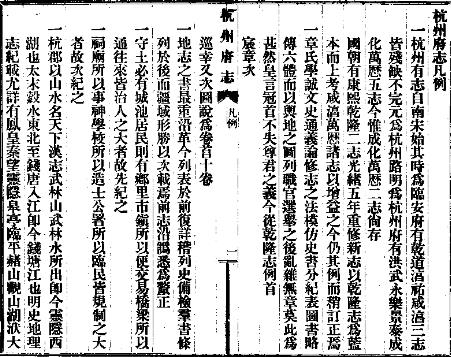 杭州府志凡例
一杭州有志自南宋始其時爲臨安府有乾道淳祐咸淳三志
皆殘缺不完元爲杭州路明爲杭州府有洪武永樂景泰成
化萬厯五志今惟成化萬厯二志尙存
國朝有康熙乾隆二志光緒五年重修新志以乾隆志爲藍
本而上考咸淳萬厯志以增益之今仍其例而稍訂正焉
章氏學誠文史通義論修志之法模仿史書分紀表圖書略
傳六體而以輿地之圖列職官選舉之後亂雜無章莫此爲
甚然皇言冠首不失尊君之義今從乾隆志例首
宸章次
杭州府志 凡例 一
巡幸又次圖說爲卷首十卷
一地志之書最重沿革今列表於前復詳稽列史備檢羣書條
列於後而疆域形勝以次載焉前志沿譌悉爲釐正
一守土必有城池居民則有鄉里市鎭所以便交易橋梁所以
通往來皆治人之大者故先紀之
一祠廟所以事神學校所以造士公署所以臨民皆規制之大
者故次紀之
一杭郡以山水名天下漢志武林山武林水所出卽今靈隱西
湖也太末縠水東北至錢唐入江卽今錢塘江也明史地理
志紀載尤詳有鳳皇秦望靈隱皋亭臨平赭山觀山湖洑大